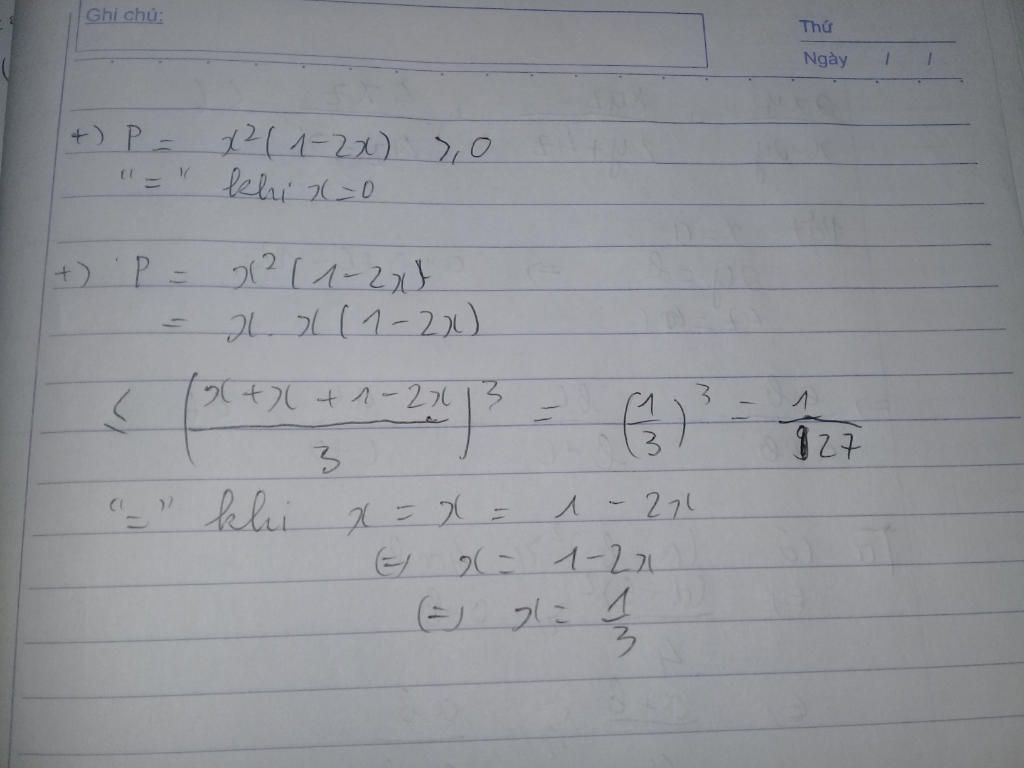 Ghi chú:
Thứ
Ngày / /
+) P = x²(1-2x) ≥ 0
"=" khi x=0
+) P = x²(1-2x)
= x. x(1-2x)
≤ ((x+x+1-2x)/3)³ = (1/3)³ = 1/27
"=" khi x = x = 1-2x
(=) x = 1-2x
(=) x = 1/3